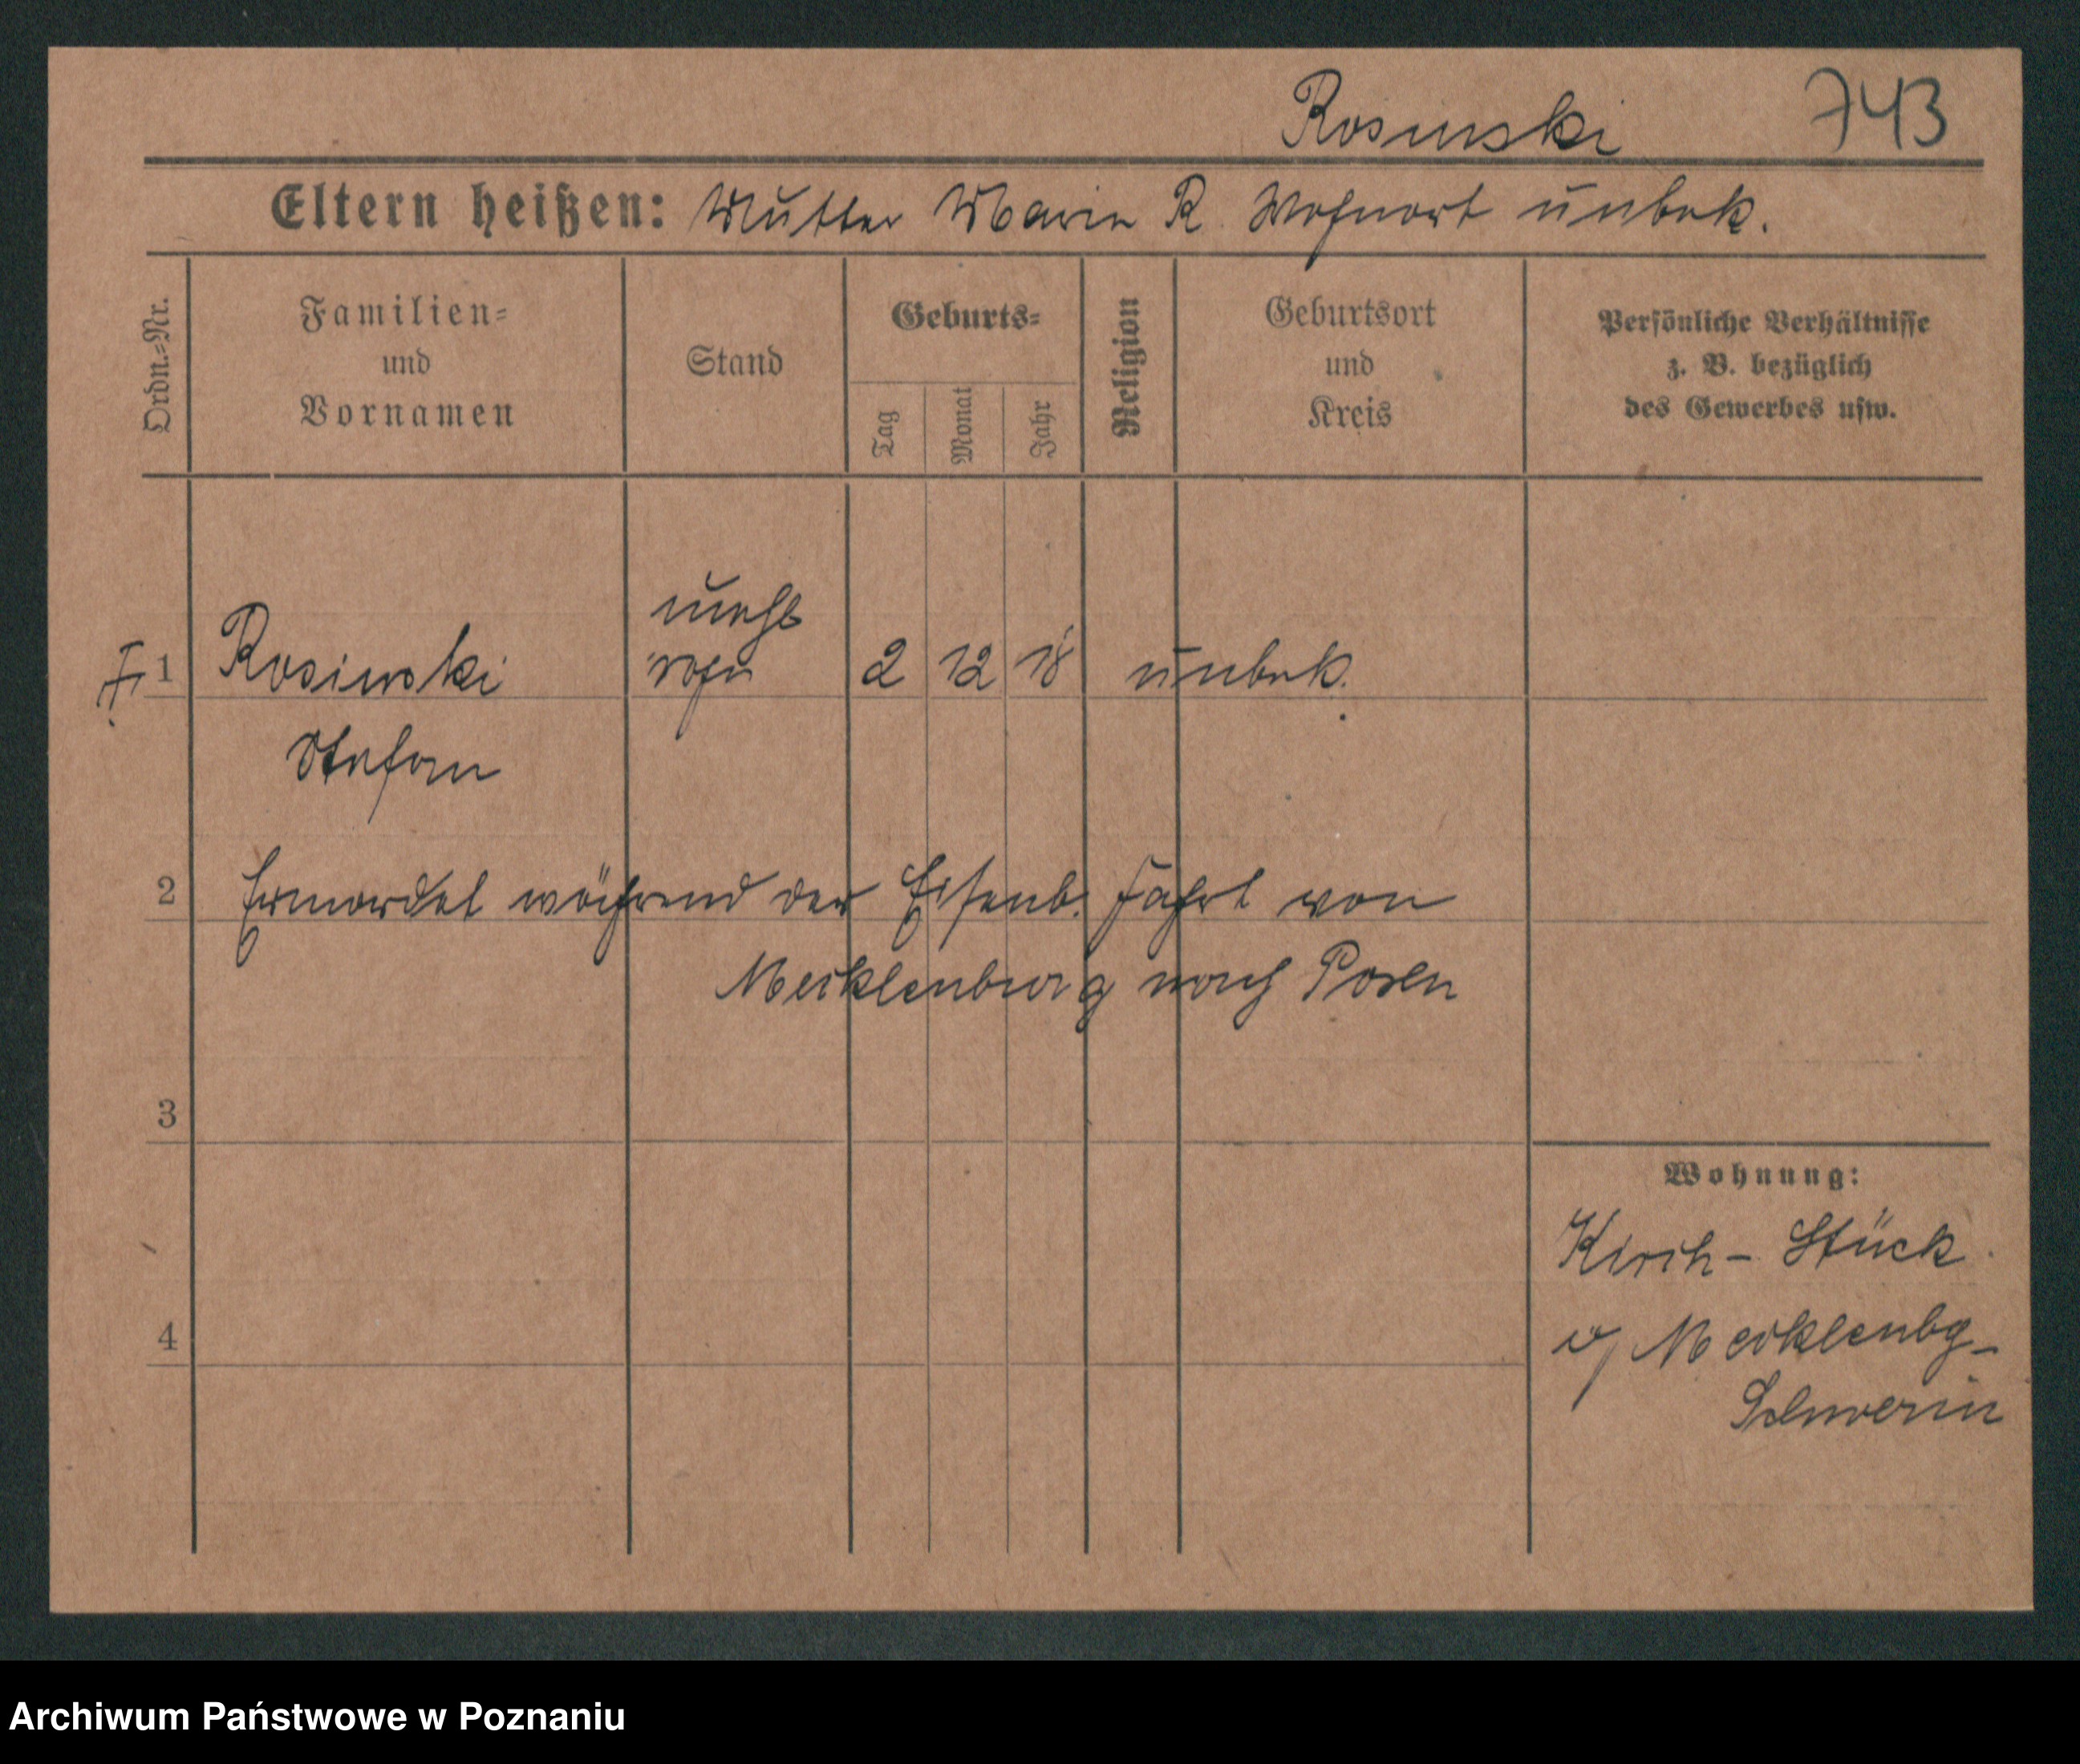 Rosinski 743
Eltern heißen: Mutter Marie R. Wohnort unbek.
Ordn.-Nr.
Familien-
und
Vornamen
Stand
Geburts-
Tag
Monat
Jahr
Religion
Geburtsort
und
Kreis
Persönliche Verhältnisse
z. B. bezüglich
des Gewerbes usw.
unehl
1 Rosinski sohn 2 12 18 unbek.
Stefan
2 Ermordet während der Eisenb. Fahrt von
Mecklenburg nach Posen
3
Wohnung:
Kirch- Stück
4
i/ Mecklenbg-
Schwerin
Archiwum Państwowe w Poznaniu